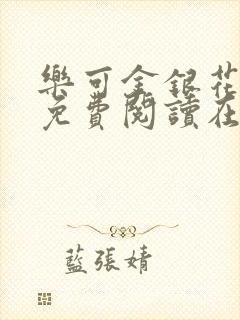 樂可金銀花
免費閱讀在
藍張婧